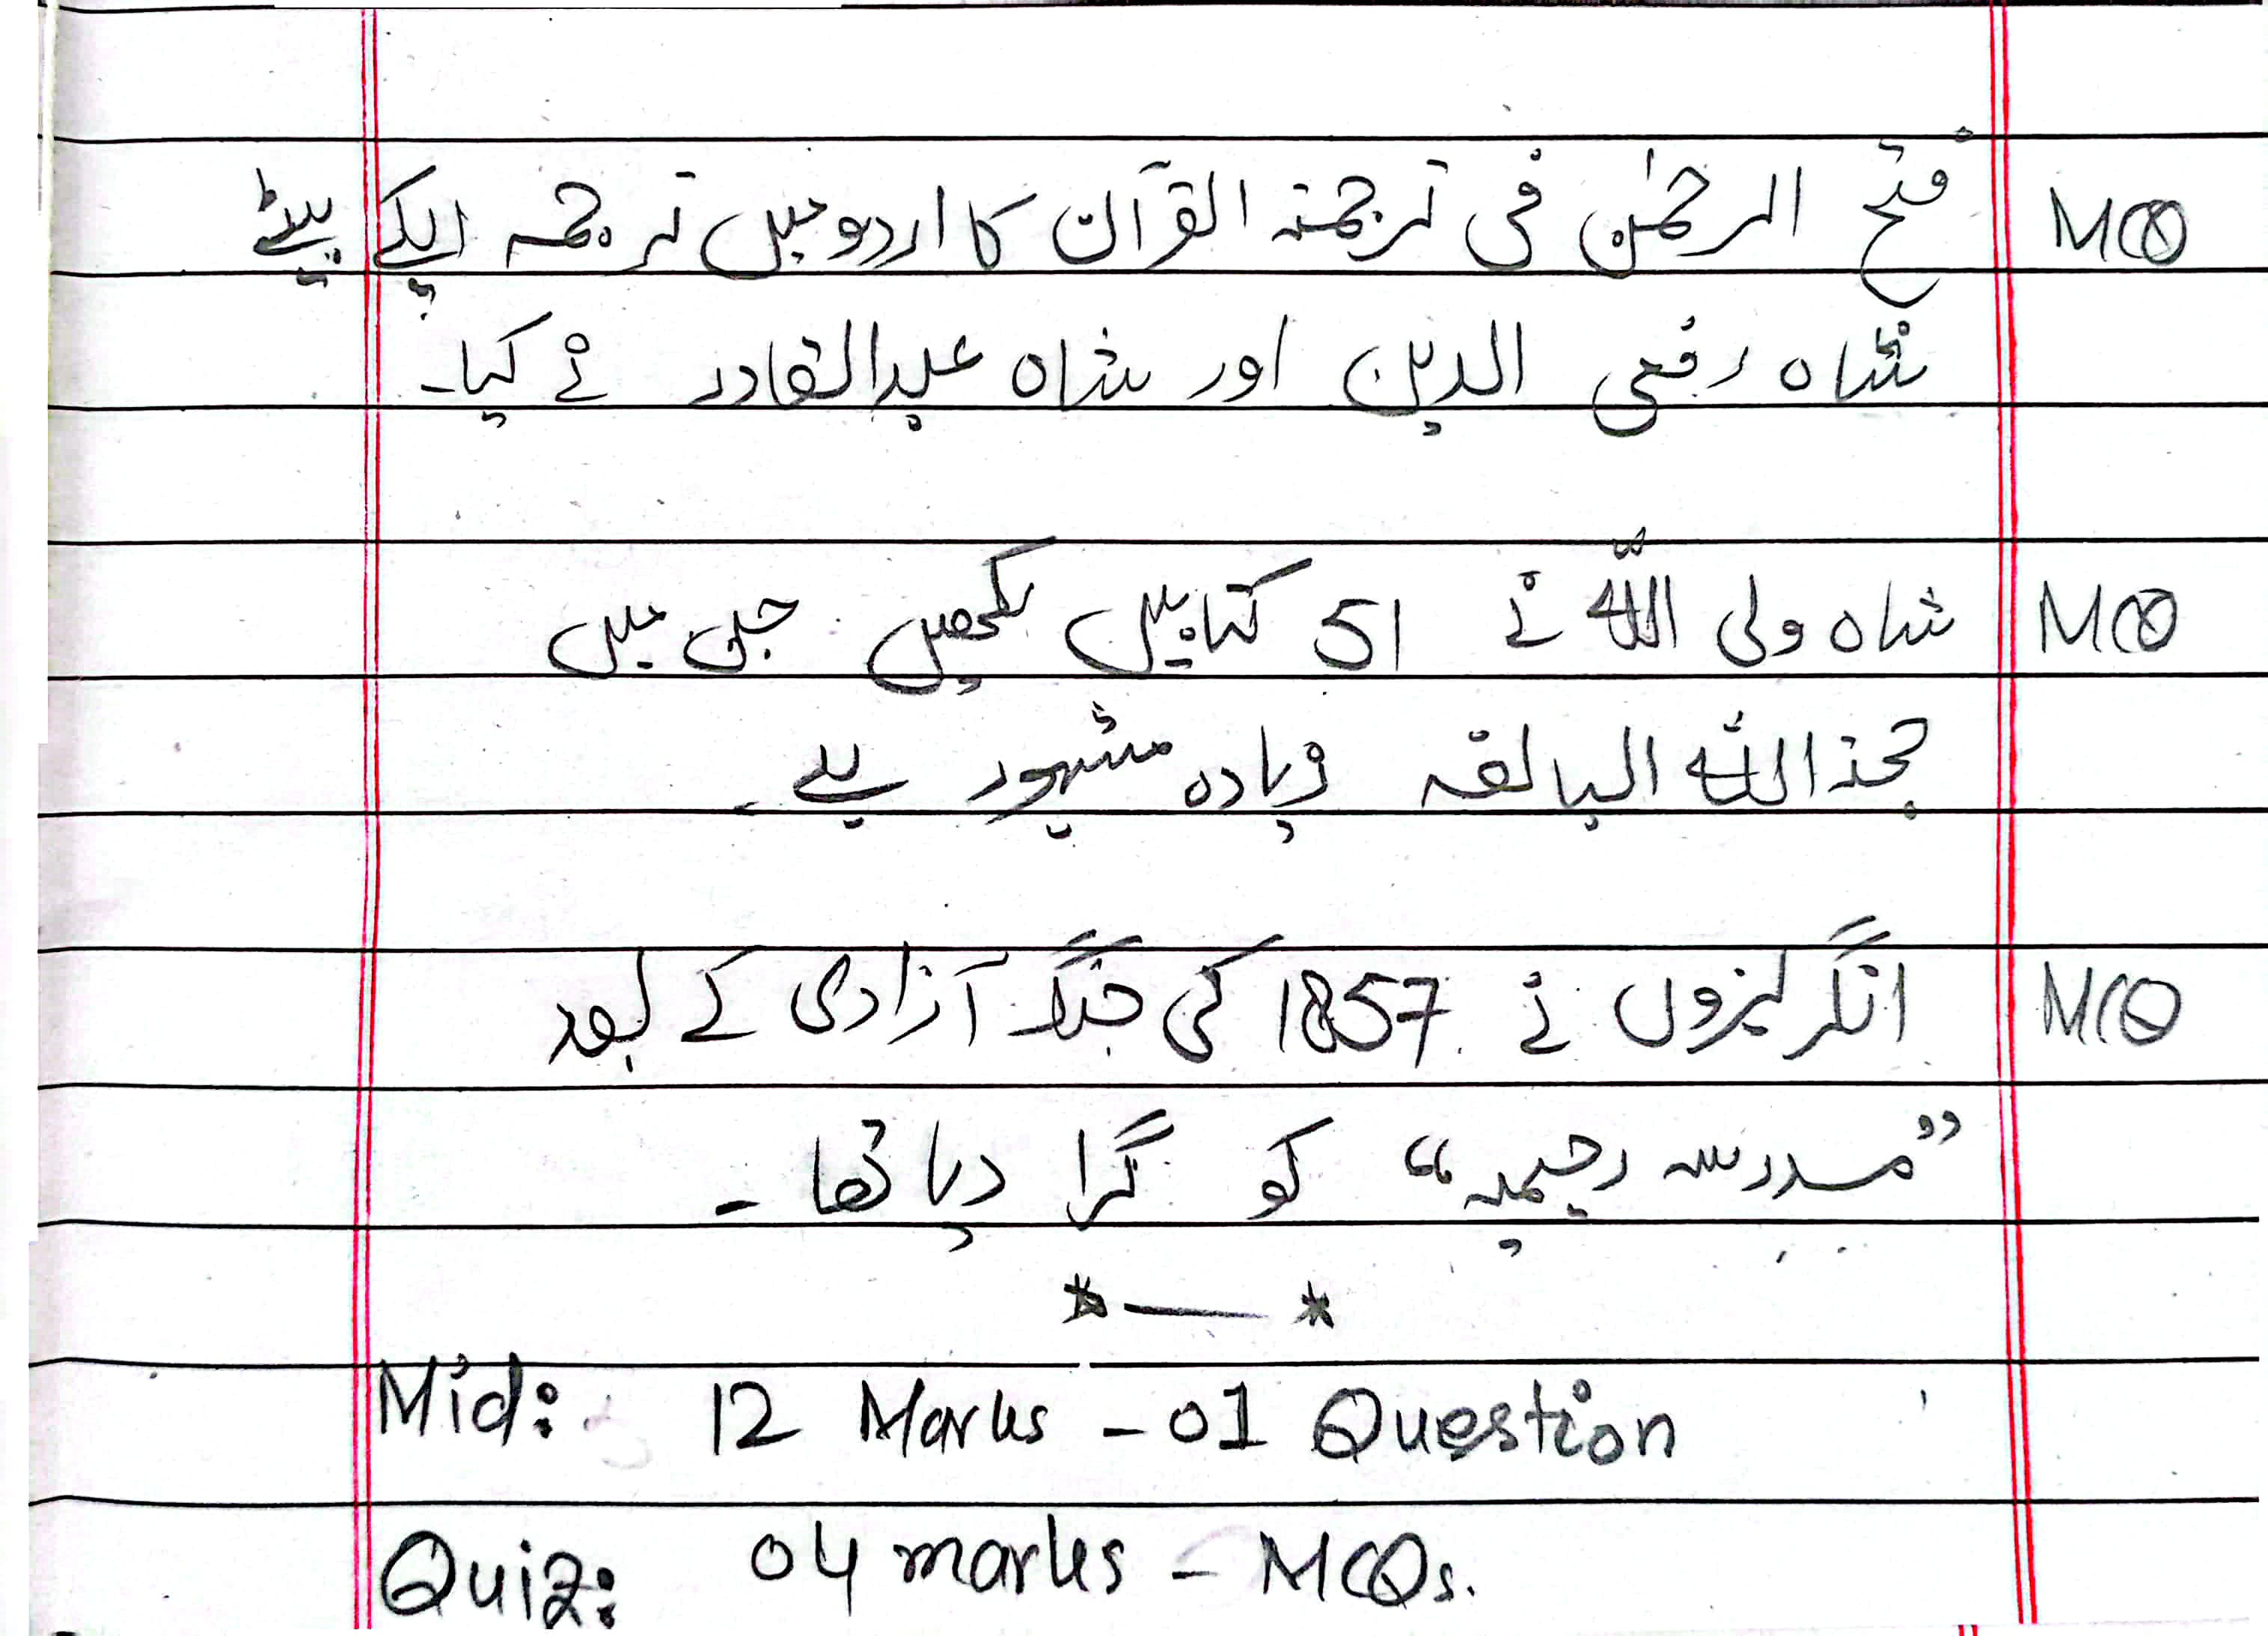 MCQ فتح الرحمٰن فی ترجمتہ القرآن کا اردو میں ترجمہ آپکے بیٹے
شاہ رفیع الدین اور شاہ عبدالقادر نے کیا۔
MCQ شاہ ولی اللّٰہ نے 51 کتابیں لکھیں جن میں
حجتہ اللّٰہ البالقہ زیادہ مشہور ہے۔
MCQ انگریزوں نے 1857 کی جنگ آزادی کے بعد
”مدرسہ رحیمیہ“ کو گرا دیا تھا۔
*—*
Mid: 12 Marks - 01 Question
Quiz: 04 marks - MCQs.